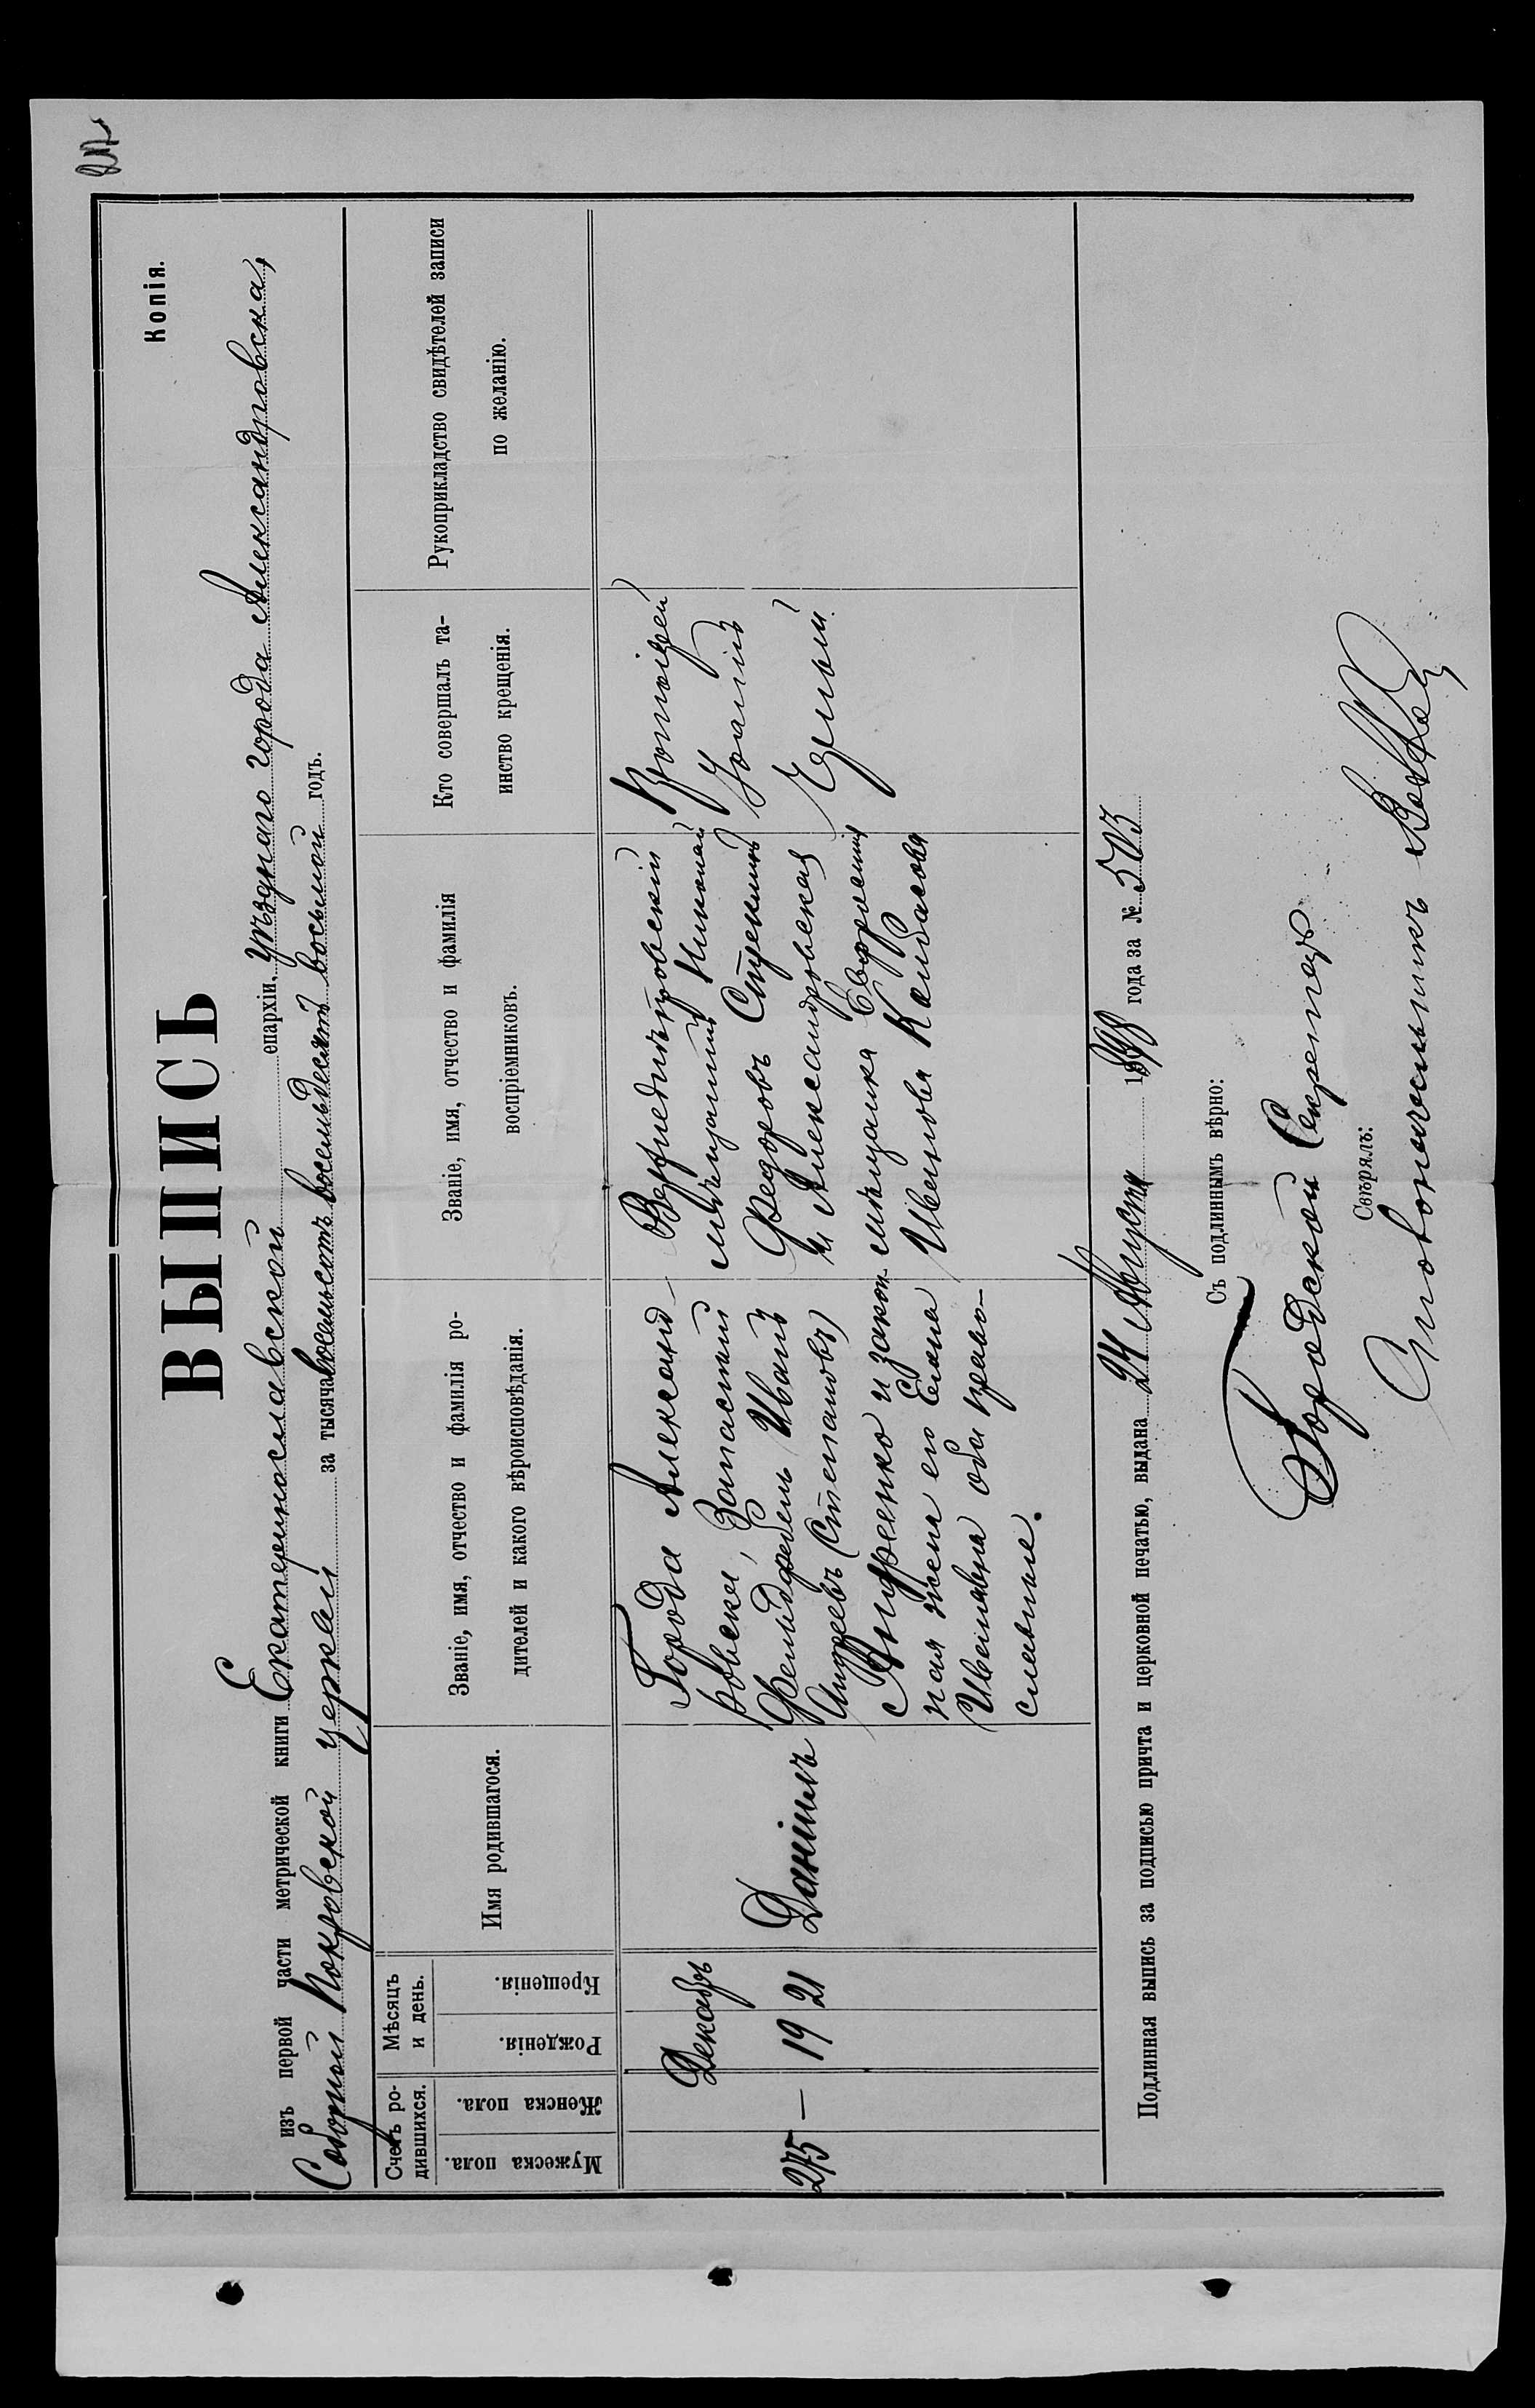 27
Копія.
ВЫПИСЬ
изъ первой части метрической книги Екатеринославской епархіи, уѣзднаго города Александровска,
Соборной Покровской церкви за тысяча восемьсотъ восемьдесятъ восьмой годъ.
Счетъ ро-
дившихся.
Мужеска пола.
Женска пола.
Мѣсяцъ
и день.
Рожденія.
Крещенія.
Имя родившагося.
Званіе, имя, отчество и фамилія ро-
дителей и какого вѣроисповѣданія.
Званіе, имя, отчество и фамилія
воспріемниковъ.
Кто совершалъ та-
инство крещенія.
Рукоприкладство свидѣтелей записи
по желанію.
275
—
Декабрь
19
21
Даніилъ
Города Александ-
ровска, Запасный
Фельдфебель Иванъ
Андреевъ (Степановъ)
Андреенко и закон-
ная жена его Елена
Ивановна оба право-
славные.
Верхнеднѣпровскій
мѣщанинъ Николай
Федоровъ
и Александровская
мѣщанка Евфросинія
Иванова
Протоіерей
Іоаннъ
Подлинная выпись за подписью причта и церковной печатью, выдана 24 Августа 1898 года за № 503
Съ подлиннымъ вѣрно:
Городской Секретарь
Свѣрялъ:
Столоначальникъ